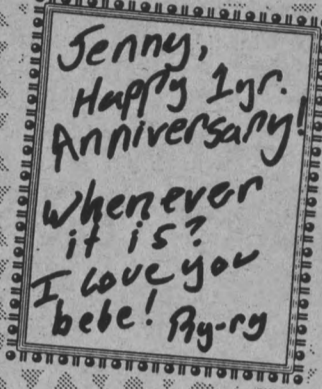 Jenny,
Happy 1yr.
Anniversary!
Whenever
it is?
I Love you
bebe! Ry-ry